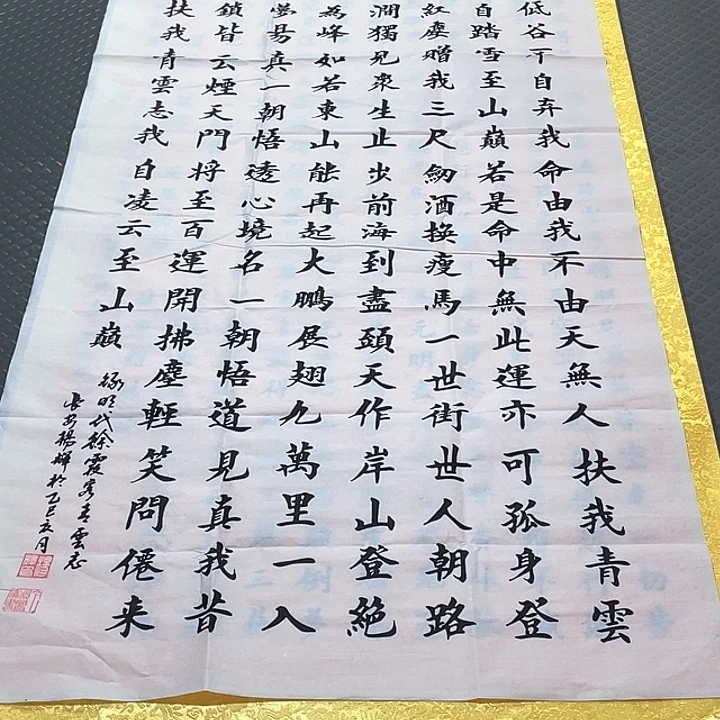 低谷不自弃我命由我不由天無人扶我青雲
自踏雪至山巔若是命中無此運亦可孤身登
紅塵贈我三尺釼酒換瘦馬一世街世人朝路
澗獨見衆生止步前海到盡頭天作岸山登絕
為峰如若東山能再起大鵬展翅九萬里一入
夢易真一朝悟透心境名一朝悟道見真我昔
鎖皆云煙天門将至百運開拂塵輕笑問僊来
扶我青雲志我自凌云至山巔
録明代徐霞客青雲志
长安楊輝於乙巳亥月